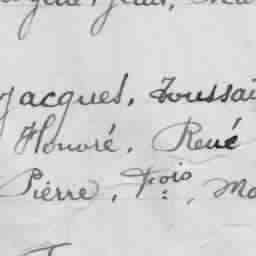 Jacques, Toussai
Honoré, René
Pierre, Fois, Ma